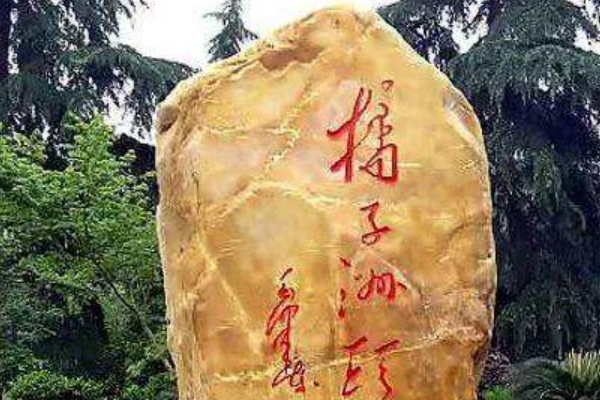 橘子洲头
毛泽东